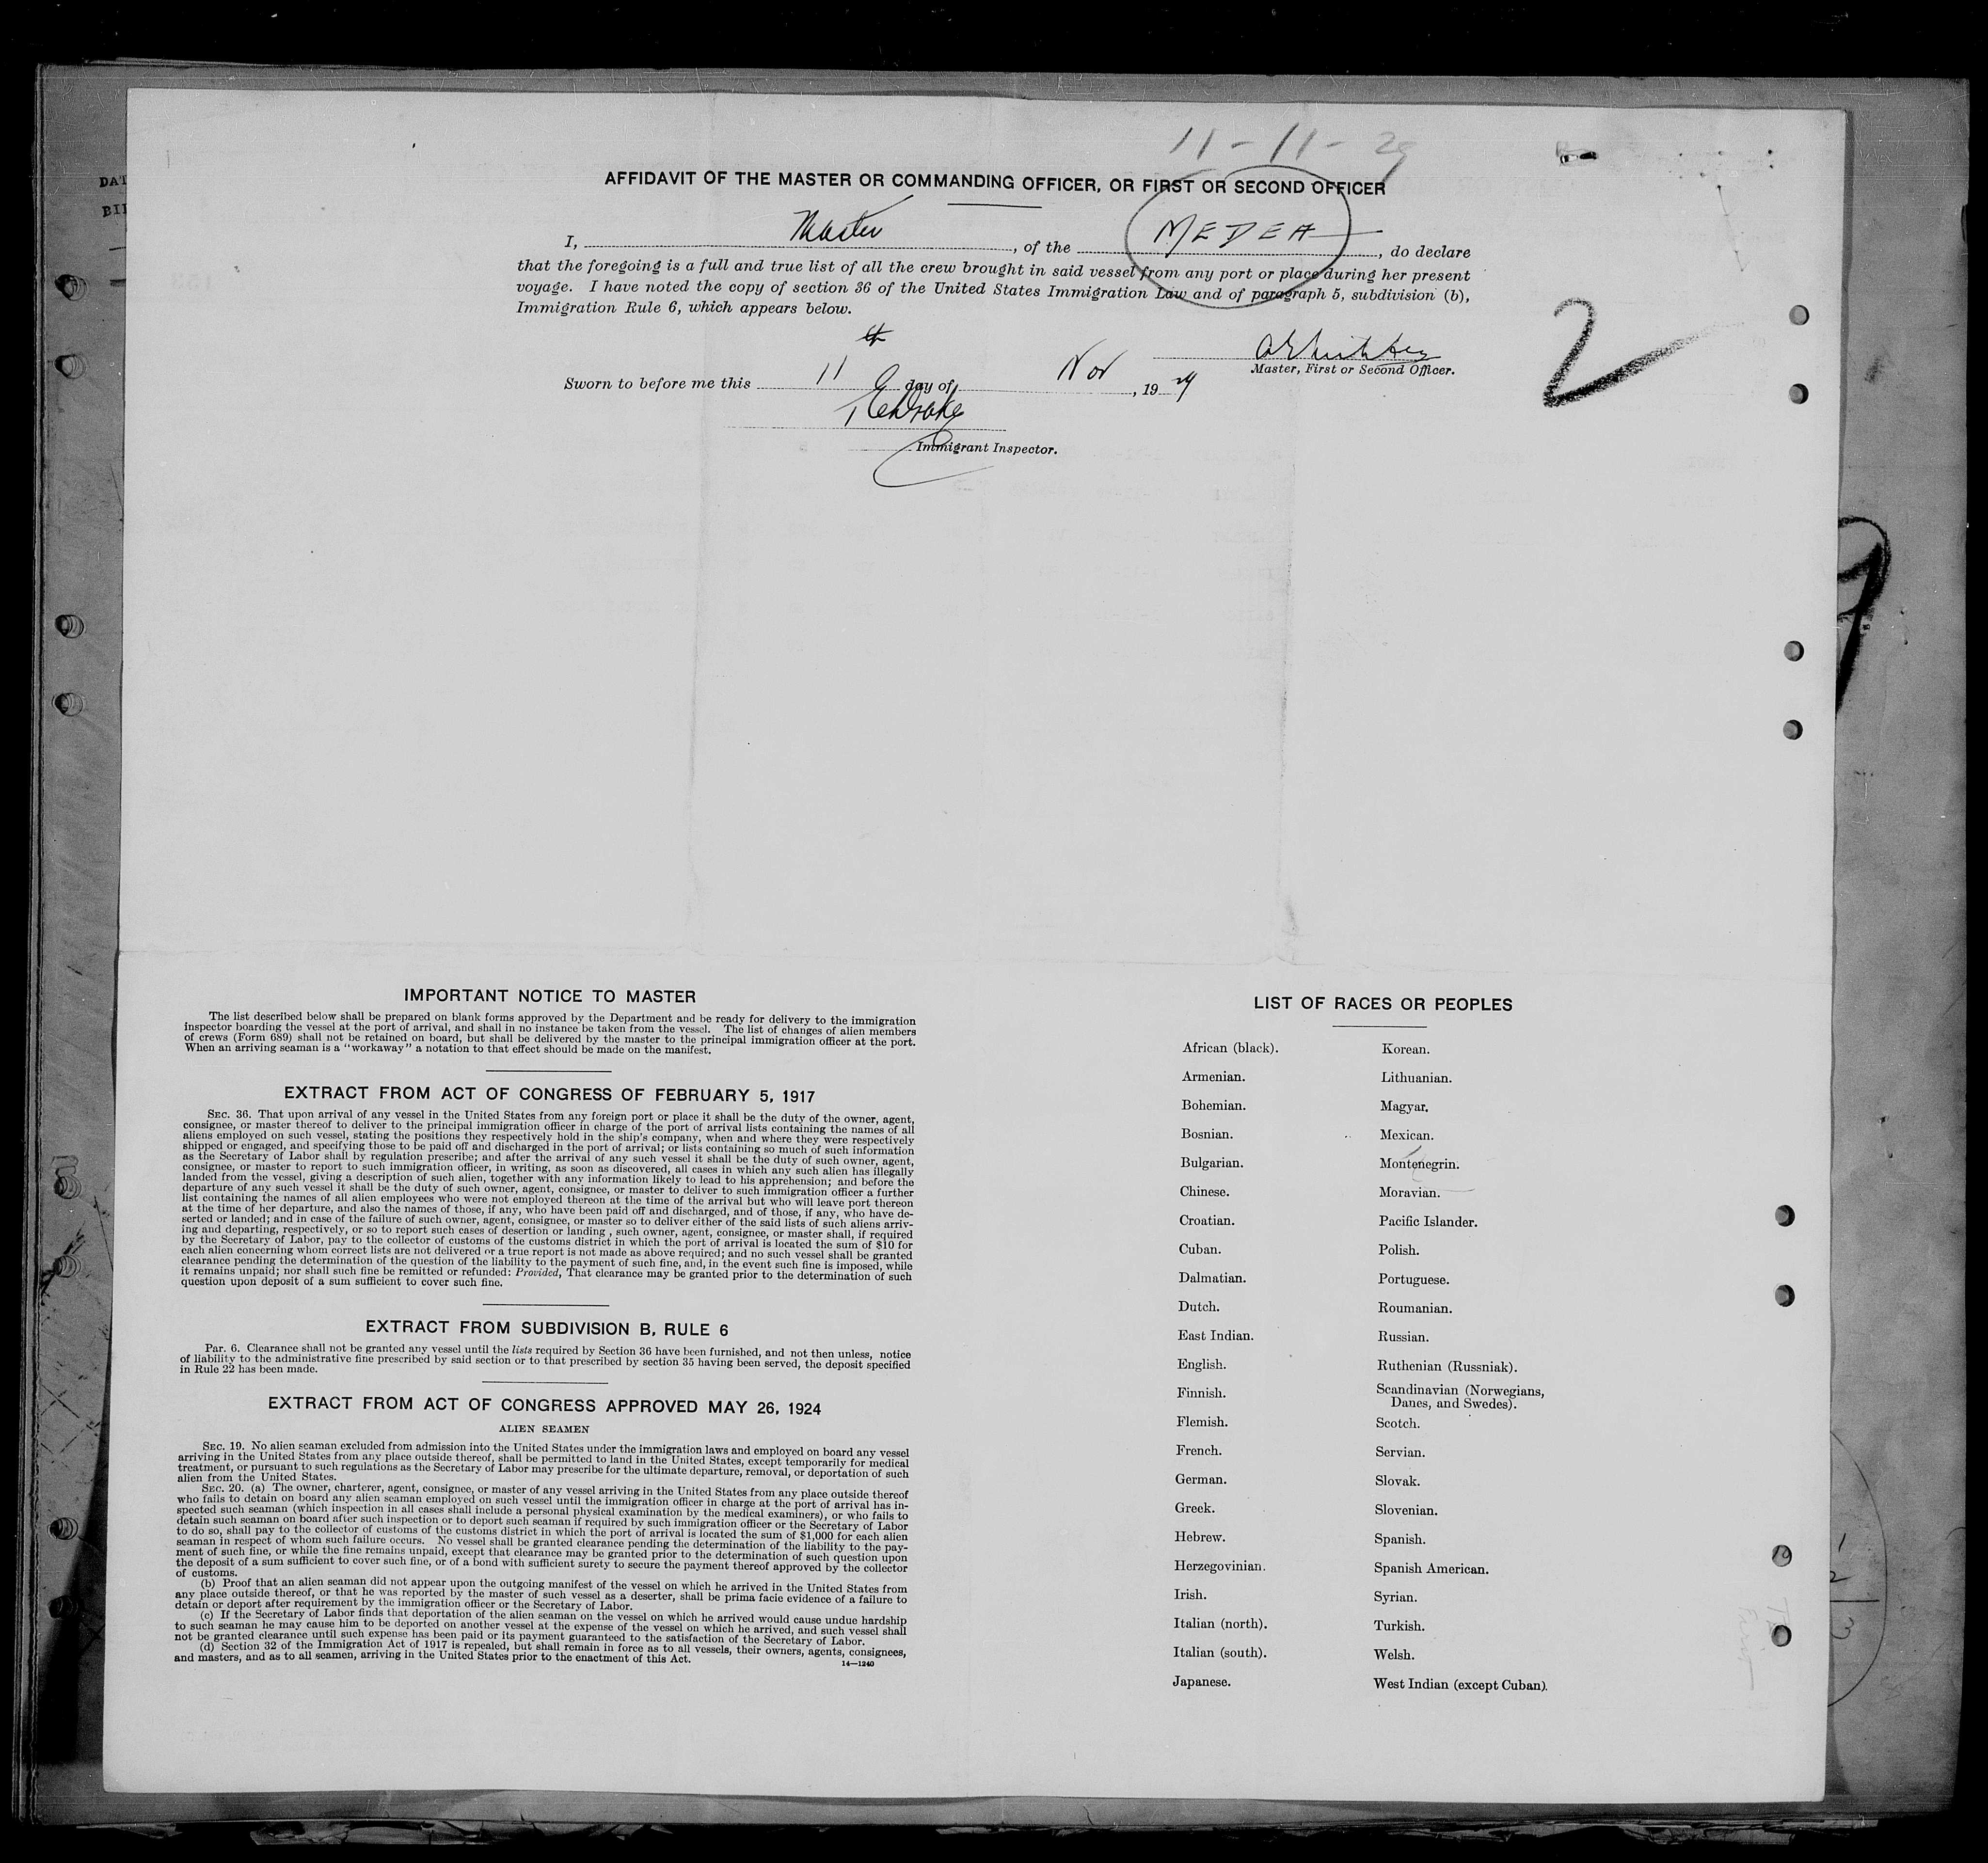 11-11-29
AFFIDAVIT OF THE MASTER OR COMMANDING OFFICER, OR FIRST OR SECOND OFFICER
I, Master, of the MEDEA, do declare
that the foregoing is a full and true list of all the crew brought in said vessel from any port or place during her present
voyage. I have noted the copy of section 36 of the United States Immigration Law and of paragraph 5, subdivision (b),
Immigration Rule 6, which appears below.
Master, First or Second Officer.
Sworn to before me this 11th day of Nov, 1929
Immigrant Inspector.
2
DAT
BIL
IMPORTANT NOTICE TO MASTER
The list described below shall be prepared on blank forms approved by the Department and be ready for delivery to the immigration
inspector boarding the vessel at the port of arrival, and shall in no instance be taken from the vessel. The list of changes of alien members
of crews (Form 689) shall not be retained on board, but shall be delivered by the master to the principal immigration officer at the port.
When an arriving seaman is a "workaway" a notation to that effect should be made on the manifest.
EXTRACT FROM ACT OF CONGRESS OF FEBRUARY 5, 1917
SEC. 36. That upon arrival of any vessel in the United States from any foreign port or place it shall be the duty of the owner, agent,
consignee, or master thereof to deliver to the principal immigration officer in charge of the port of arrival lists containing the names of all
aliens employed on such vessel, stating the positions they respectively hold in the ship's company, when and where they were respectively
shipped or engaged, and specifying those to be paid off and discharged in the port of arrival; or lists containing so much of such information
as the Secretary of Labor shall by regulation prescribe; and after the arrival of any such vessel it shall be the duty of such owner, agent,
consignee, or master to report to such immigration officer, in writing, as soon as discovered, all cases in which any such alien has illegally
landed from the vessel, giving a description of such alien, together with any information likely to lead to his apprehension; and before the
departure of any such vessel it shall be the duty of such owner, agent, consignee, or master to deliver to such immigration officer a further
list containing the names of all alien employees who were not employed thereon at the time of the arrival but who will leave port thereon
at the time of her departure, and also the names of those, if any, who have been paid off and discharged, and of those, if any, who have de-
serted or landed; and in case of the failure of such owner, agent, consignee, or master so to deliver either of the said lists of such aliens arriv-
ing and departing, respectively, or so to report such cases of desertion or landing , such owner, agent, consignee, or master shall, if required
by the Secretary of Labor, pay to the collector of customs of the customs district in which the port of arrival is located the sum of $10 for
each alien concerning whom correct lists are not delivered or a true report is not made as above required; and no such vessel shall be granted
clearance pending the determination of the question of the liability to the payment of such fine, and, in the event such fine is imposed, while
it remains unpaid; nor shall such fine be remitted or refunded: Provided, That clearance may be granted prior to the determination of such
question upon deposit of a sum sufficient to cover such fine.
EXTRACT FROM SUBDIVISION B, RULE 6
Par. 6. Clearance shall not be granted any vessel until the lists required by Section 36 have been furnished, and not then unless, notice
of liability to the administrative fine prescribed by said section or to that prescribed by section 35 having been served, the deposit specified
in Rule 22 has been made.
EXTRACT FROM ACT OF CONGRESS APPROVED MAY 26, 1924
ALIEN SEAMEN
SEC. 19. No alien seaman excluded from admission into the United States under the immigration laws and employed on board any vessel
arriving in the United States from any place outside thereof, shall be permitted to land in the United States, except temporarily for medical
treatment, or pursuant to such regulations as the Secretary of Labor may prescribe for the ultimate departure, removal, or deportation of such
alien from the United States.
SEC. 20. (a) The owner, charterer, agent, consignee, or master of any vessel arriving in the United States from any place outside thereof
who fails to detain on board any alien seaman employed on such vessel until the immigration officer in charge at the port of arrival has in-
spected such seaman (which inspection in all cases shall include a personal physical examination by the medical examiners), or who fails to
detain such seaman on board after such inspection or to deport such seaman if required by such immigration officer or the Secretary of Labor
to do so, shall pay to the collector of customs of the customs district in which the port of arrival is located the sum of $1,000 for each alien
seaman in respect of whom such failure occurs. No vessel shall be granted clearance pending the determination of the liability to the pay-
ment of such fine, or while the fine remains unpaid, except that clearance may be granted prior to the determination of such question upon
the deposit of a sum sufficient to cover such fine, or of a bond with sufficient surety to secure the payment thereof approved by the collector
of customs.
(b) Proof that an alien seaman did not appear upon the outgoing manifest of the vessel on which he arrived in the United States from
any place outside thereof, or that he was reported by the master of such vessel as a deserter, shall be prima facie evidence of a failure to
detain or deport after requirement by the immigration officer or the Secretary of Labor.
(c) If the Secretary of Labor finds that deportation of the alien seaman on the vessel on which he arrived would cause undue hardship
to such seaman he may cause him to be deported on another vessel at the expense of the vessel on which he arrived, and such vessel shall
not be granted clearance until such expense has been paid or its payment guaranteed to the satisfaction of the Secretary of Labor.
(d) Section 32 of the Immigration Act of 1917 is repealed, but shall remain in force as to all vessels, their owners, agents, consignees,
and masters, and as to all seamen, arriving in the United States prior to the enactment of this Act.
14—1240
LIST OF RACES OR PEOPLES
African (black).
Armenian.
Bohemian.
Bosnian.
Bulgarian.
Chinese.
Croatian.
Cuban.
Dalmatian.
Dutch.
East Indian.
English.
Finnish.
Flemish.
French.
German.
Greek.
Hebrew.
Herzegovinian.
Irish.
Italian (north).
Italian (south).
Japanese.
Korean.
Lithuanian.
Magyar.
Mexican.
Montenegrin.
Moravian.
Pacific Islander.
Polish.
Portuguese.
Roumanian.
Russian.
Ruthenian (Russniak).
Scandinavian (Norwegians,
Danes, and Swedes).
Scotch.
Servian.
Slovak.
Slovenian.
Spanish.
Spanish American.
Syrian.
Turkish.
Welsh.
West Indian (except Cuban).